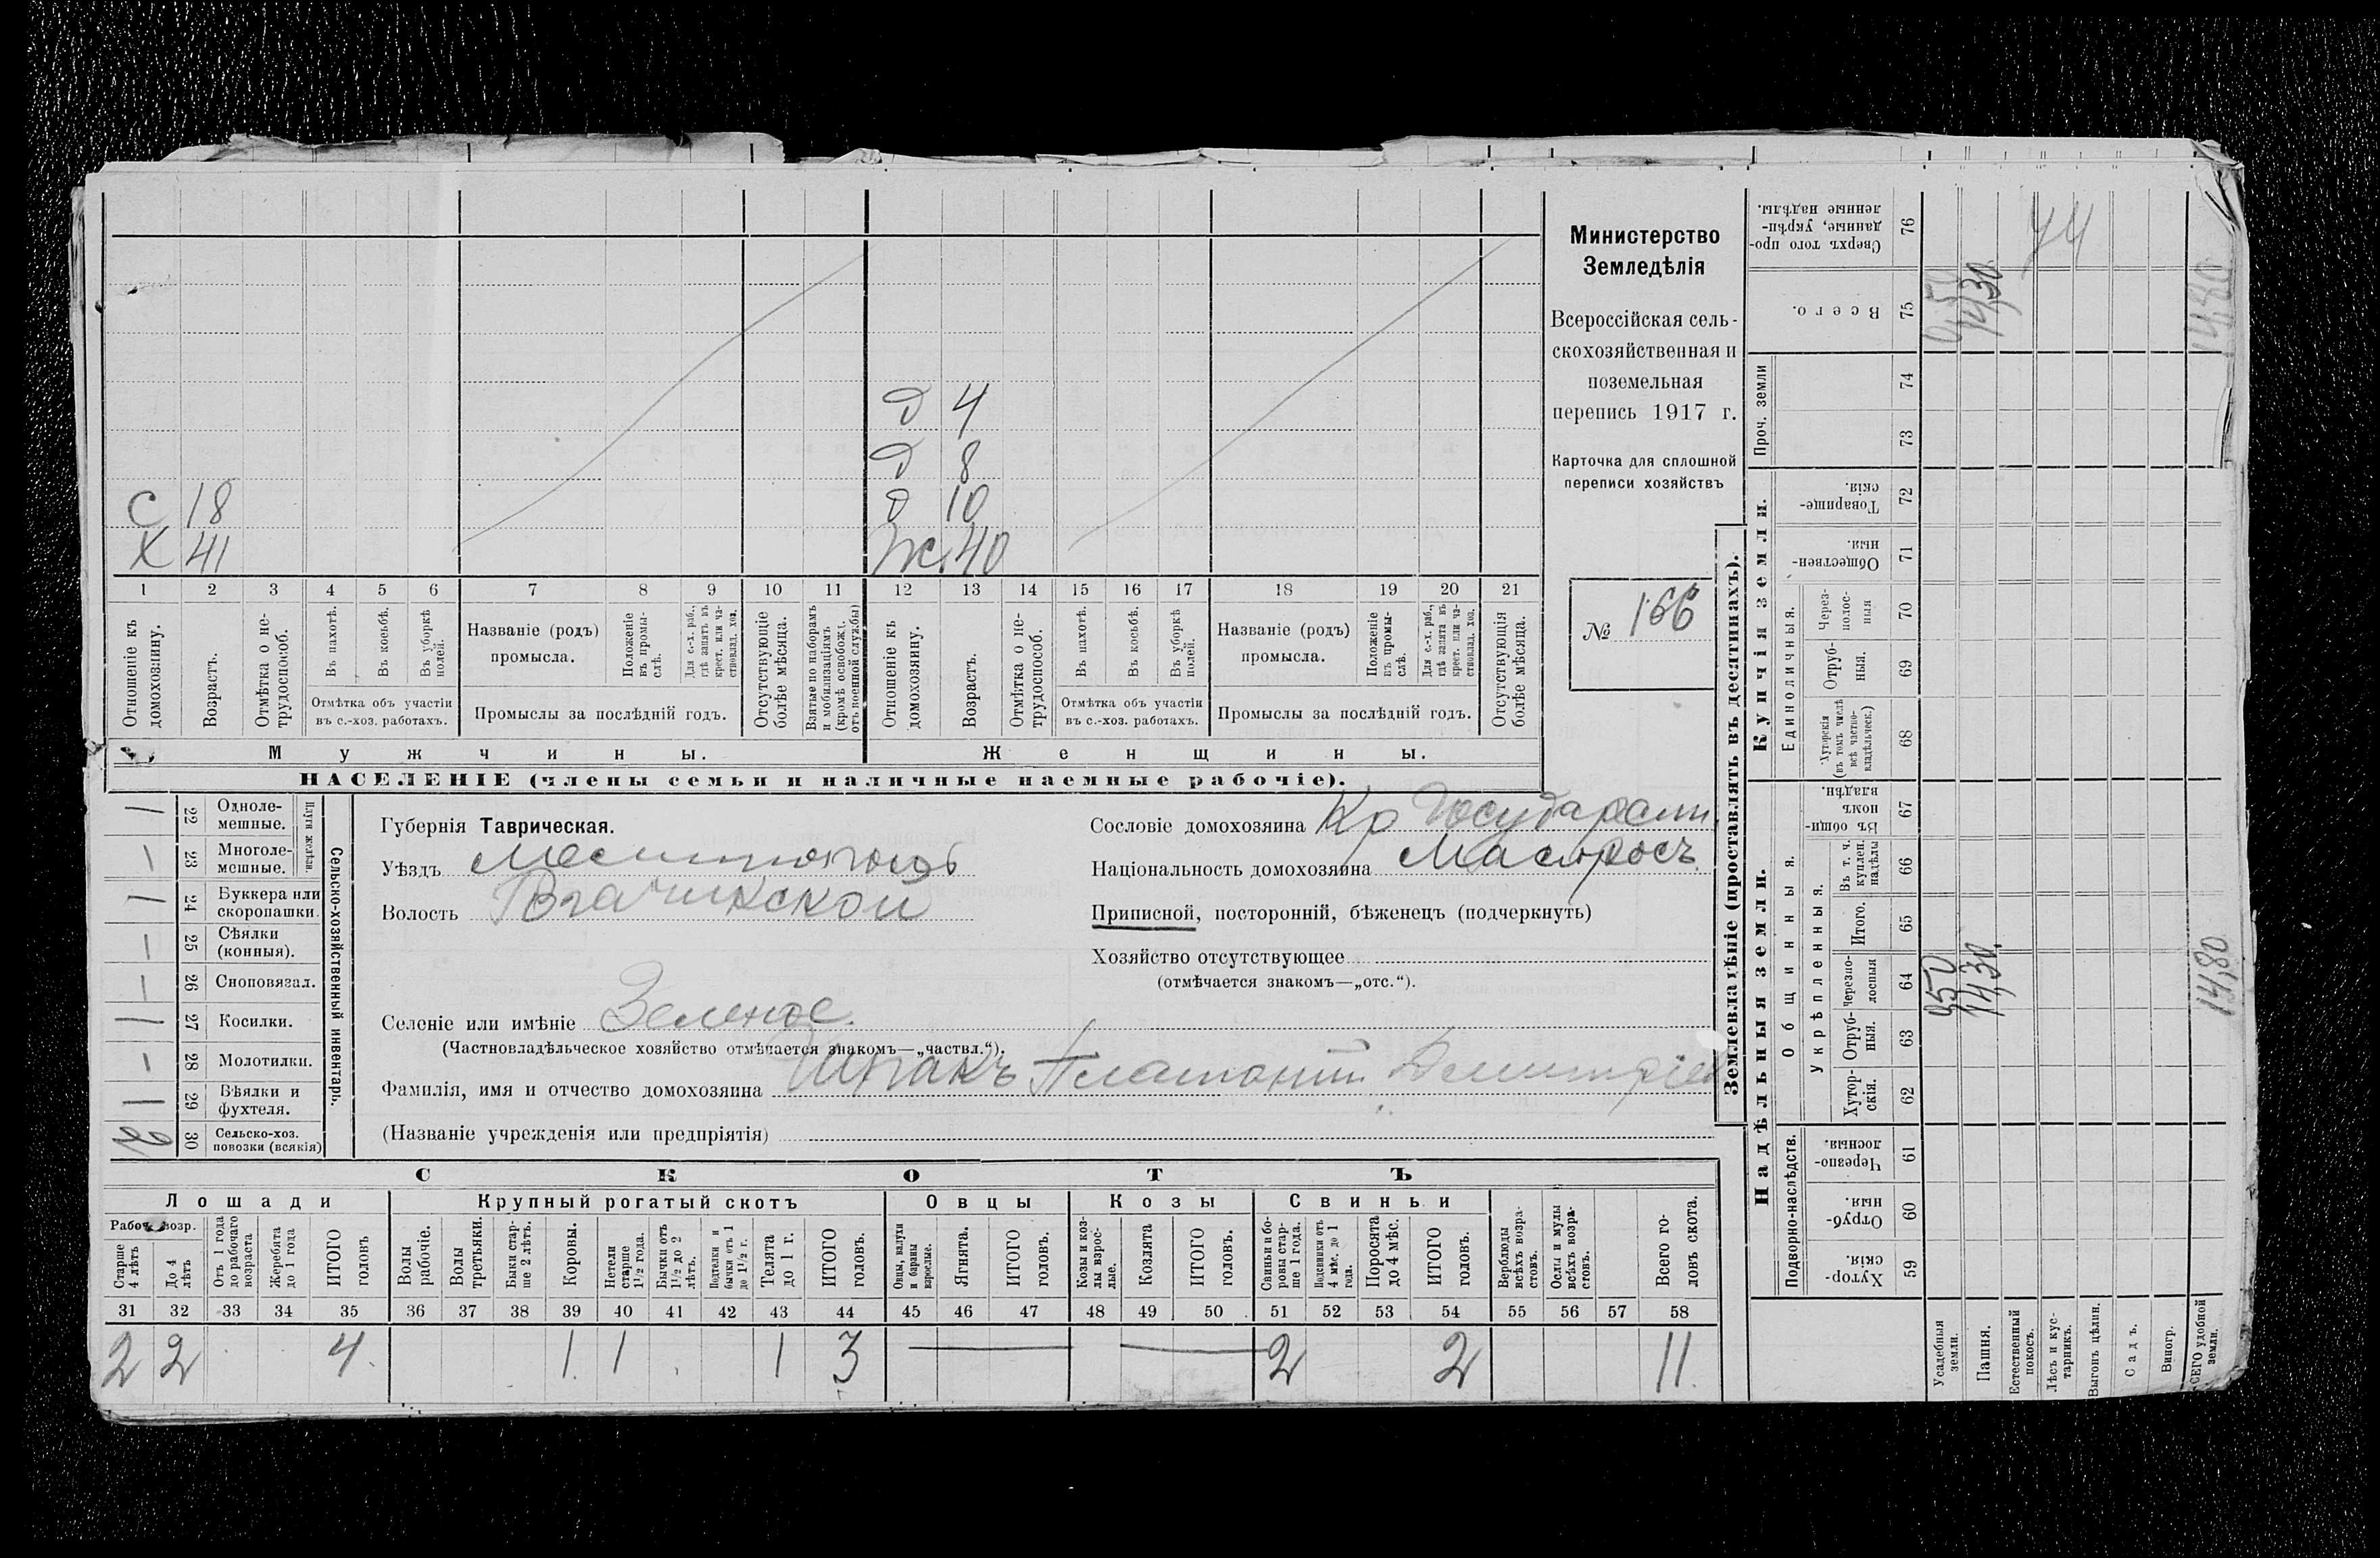 Министерство
Земледѣлія
Всероссійская сель-
скохозяйственная и
поземельная
перепись 1917 г.
Карточка для сплошной
переписи хозяйствъ
№ 166
д 4
д 8
С 18 д 10
Х 41 Ж. 40
1 2 3 4 5 6 7 8 9 10 11 12 13 14 15 16 17 18 19 20 21
Отношеніе къ домохозяину.
Возрастъ.
Отмѣтка о не-трудоспособ.
Въ пахотѣ.
Въ косьбѣ.
Въ уборкѣ полей.
Отмѣтка объ участіи
въ с.-хоз. работахъ.
Названіе (родъ)
промысла.
Положеніе въ промы-слѣ.
Для с.-х. раб., гдѣ занятъ въ крест. или ча-стновлад. хоз.
Промыслы за послѣдній годъ.
Отсутствующіе болѣе мѣсяца.
Взятые по наборамъ и мобилизаціямъ (кромѣ освобожд. отъ военной службы)
Отношеніе къ домохозяину.
Возрастъ.
Отмѣтка о не-трудоспособ.
Въ пахотѣ.
Въ косьбѣ.
Въ уборкѣ полей.
Отмѣтка объ участіи
въ с.-хоз. работахъ.
Названіе (родъ)
промысла.
Положеніе въ промы-слѣ.
Для с.-х. раб., гдѣ занята въ крест. или ча-стновлад. хоз.
Промыслы за послѣдній годъ.
Отсутствующія болѣе мѣсяца.
Мужчины. Женщины.
НАСЕЛЕНІЕ (члены семьи и наличные наемные рабочіе).
Сельско-хозяйственный инвентарь.
Плуги желѣзн.
22 Одноле-мешные.
23 Многоле-мешные.
24 Буккера или скоропашки.
25 Сѣялки (конныя).
26 Сноповязал.
27 Косилки.
28 Молотилки.
29 Вѣялки и фухтеля.
30 Сельско-хоз. повозки (всякія)
Губернія Таврическая.
Уѣздъ
Волость
Селеніе или имѣніе Зеленое.
(Частновладѣльческое хозяйство отмѣчается знакомъ—„частвл.“).
Фамилія, имя и отчество домохозяина Шпакъ
(Названіе учрежденія или предпріятія)
Сословіе домохозяина Кр Государств
Національность домохозяина Малоросъ
Приписной, посторонній, бѣженецъ (подчеркнуть)
Хозяйство отсутствующее
(отмѣчается знакомъ—„отс.“).
СКОТЪ
Лошади Крупный рогатый скотъ Овцы Козы Свиньи
Рабоч. возр.
Старше 4 лѣтъ
До 4 лѣтъ
Отъ 1 года до рабочаго возраста
Жеребята до 1 года
ИТОГО головъ
Волы рабочіе.
Волы третьяки.
Быки стар-ше 2 лѣтъ.
Коровы.
Нетели старше 1½ года.
Бычки отъ 1½ до 2 лѣтъ.
Подтелки и бычки отъ 1 до 1½ г.
Телята до 1 г.
ИТОГО головъ.
Овцы, валухи и бараны взрослые.
Ягнята.
ИТОГО головъ.
Козы и коз-лы взрос-лые.
Козлята
ИТОГО головъ.
Свиньи и бо-ровы стар-ше 1 года.
Подсвинки отъ 4 мѣс. до 1 года.
Поросята до 4 мѣс.
ИТОГО головъ.
Верблюды всѣхъ возра-стовъ.
Ослы и мулы всѣхъ возра-стовъ.
Всего го-ловъ скота.
31 32 33 34 35 36 37 38 39 40 41 42 43 44 45 46 47 48 49 50 51 52 53 54 55 56 57 58
2 2 4 1 1 1 3 2 2 11
Землевладѣніе (проставлять въ десятинахъ).
Надѣльныя земли. Купчія земли. Проч. земли
Подворно-наслѣдств.
Общинныя.
Укрѣпленныя.
Единоличныя.
59 Хутор-скія.
60 Отруб-ныя.
61 Черезпо-лосныя.
62 Хутор-скія.
63 Отруб-ныя.
64 Черезпо-лосныя
65 Итого.
66 Въ т. ч. куплен. надѣлы
67 Въ общин-номъ владѣн.
68 Хуторскія (въ томъ числѣ всѣ частно-владѣльческ.)
69 Отруб-ныя.
70 Через-полос-ныя
71 Обществен-ныя.
72 Товарище-скія.
73
74
75 Всего.
76 Сверхъ того про-данные, укрѣп-ленные надѣлы.
Усадебныя земли.
Пашня. 14,30 14,30
Естественный покосъ.
Лѣсъ и кус-тарникъ.
Выгонъ цѣлин.
Садъ.
Виногр.
ВСЕГО удобной земли. 14,80 14,80